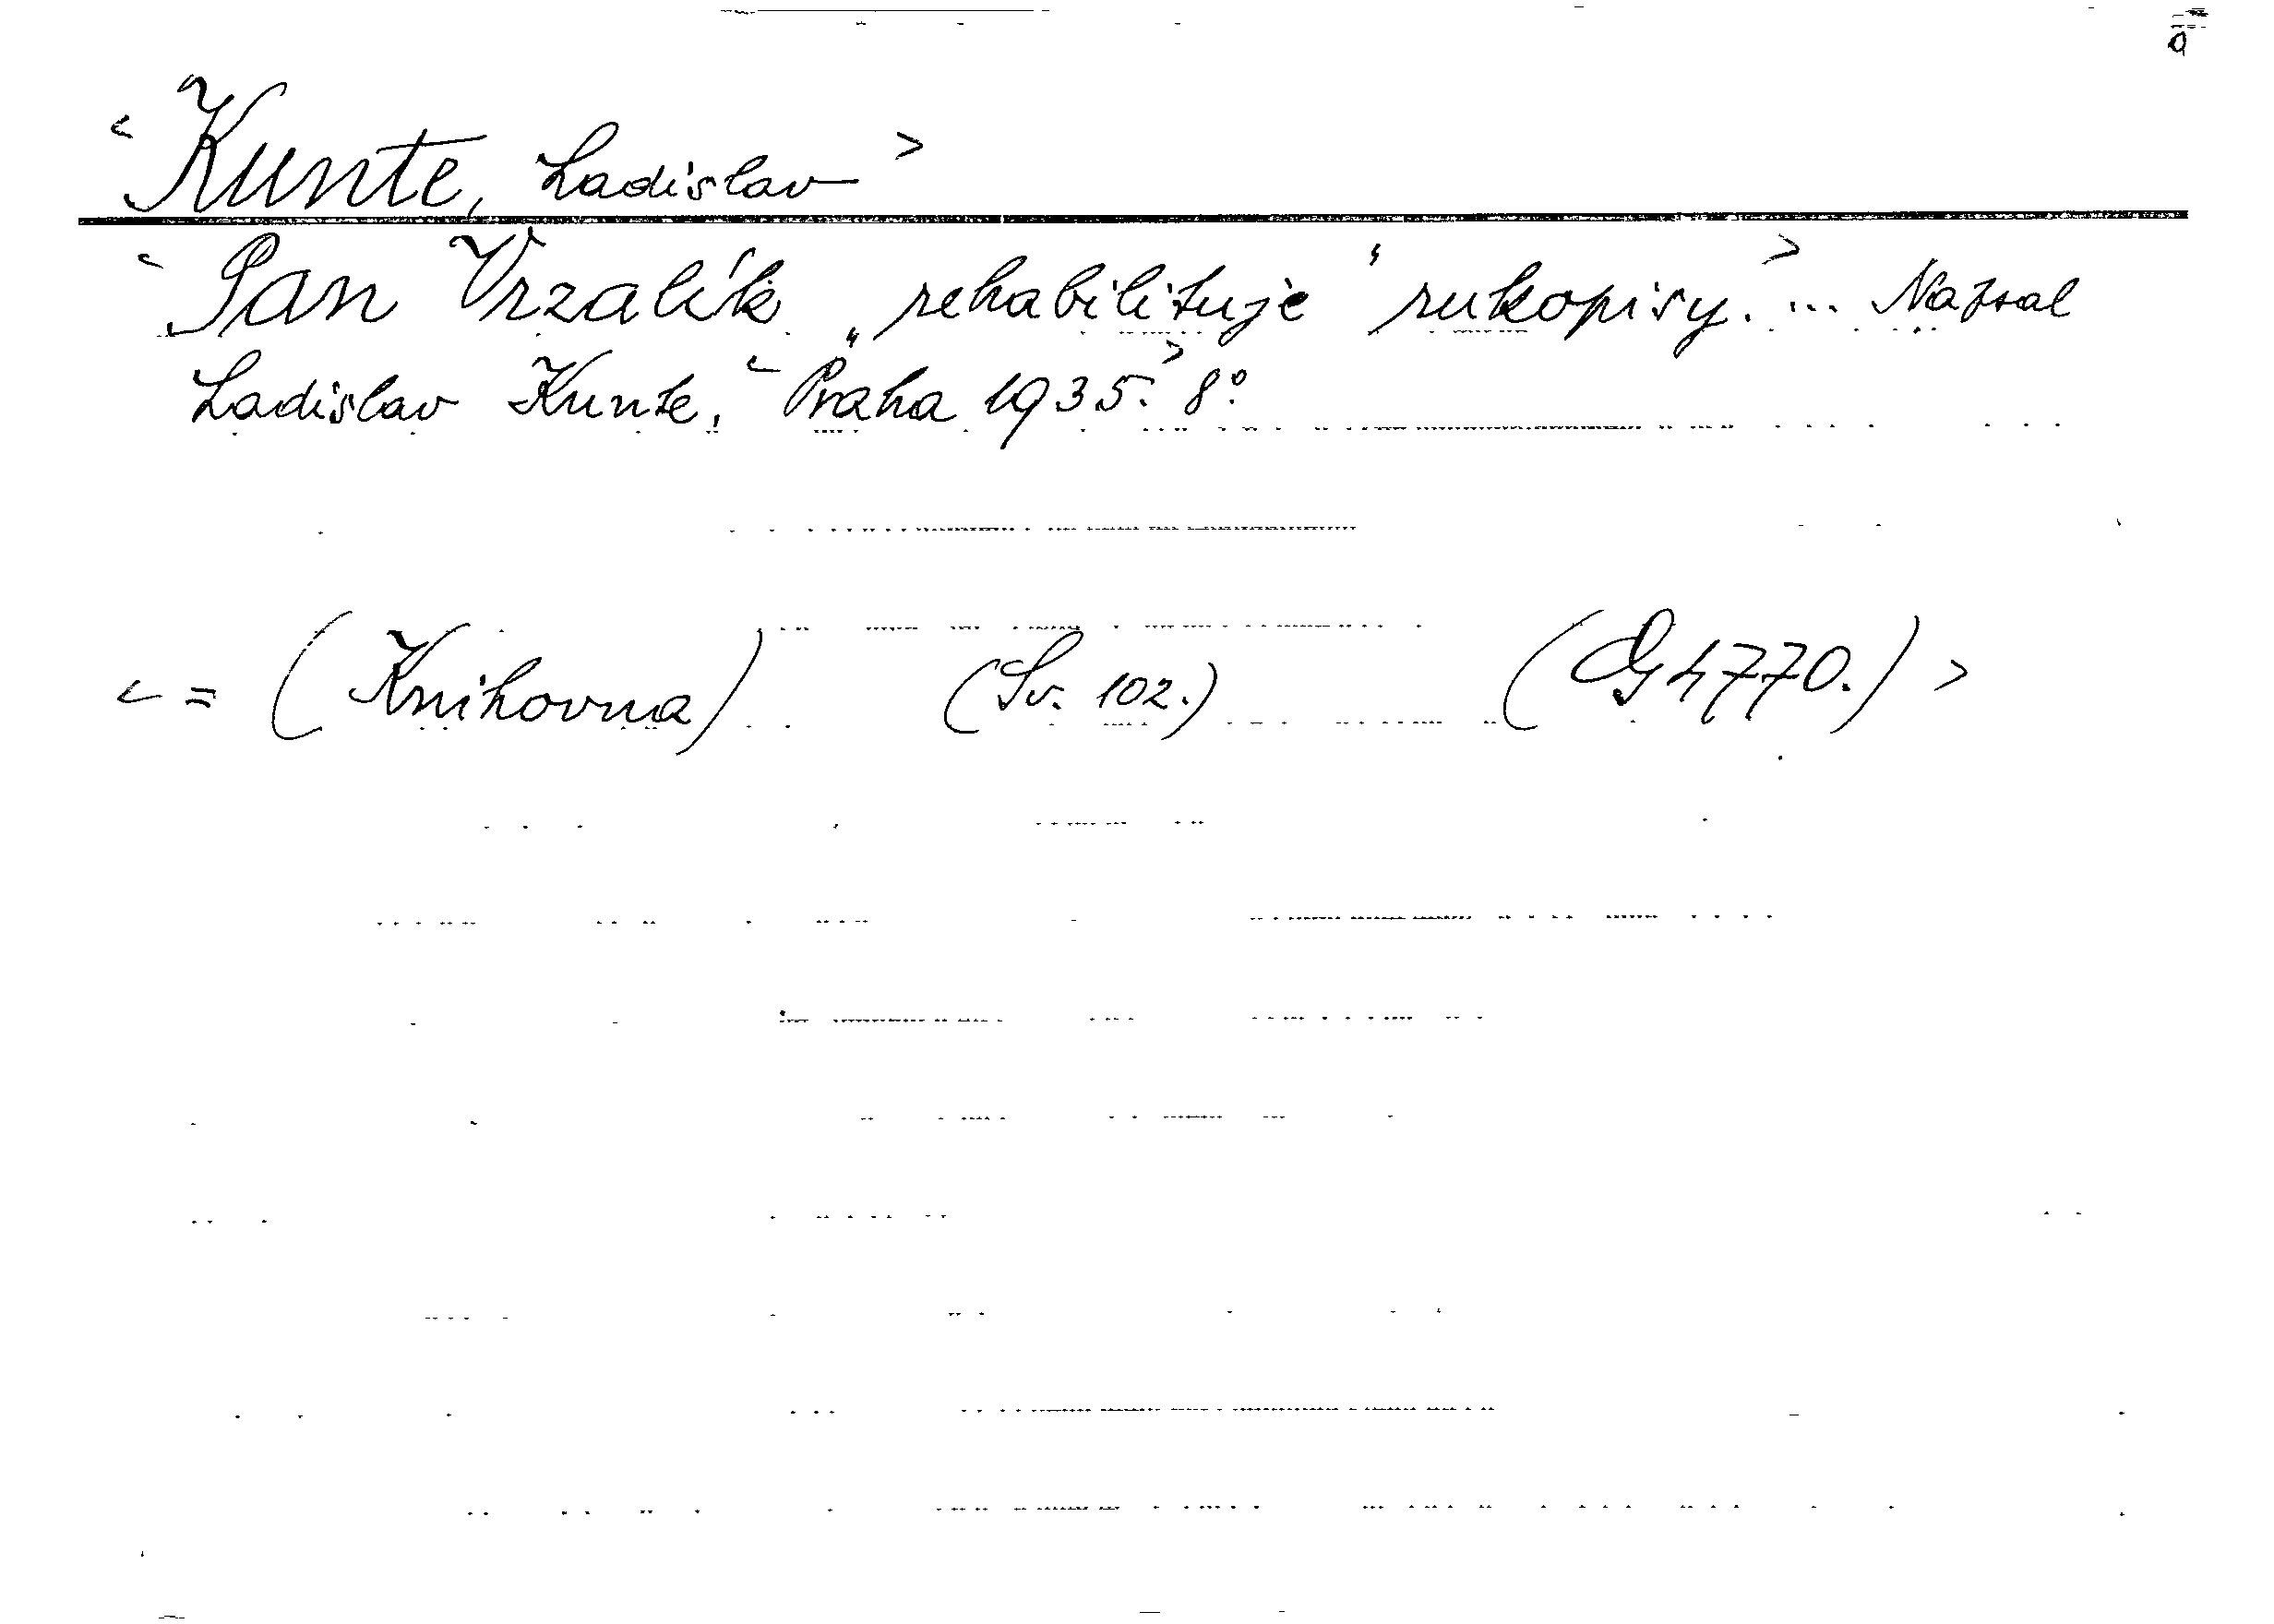 < Kunte, Ladislav >
< Pan Vrzalík „rehabilituje“ rukopisy. > ... Napsal
Ladislav Kunte. < Praha 1935. > 8°
< = (Knihovna) (Sv. 102.) (G 4770.) >